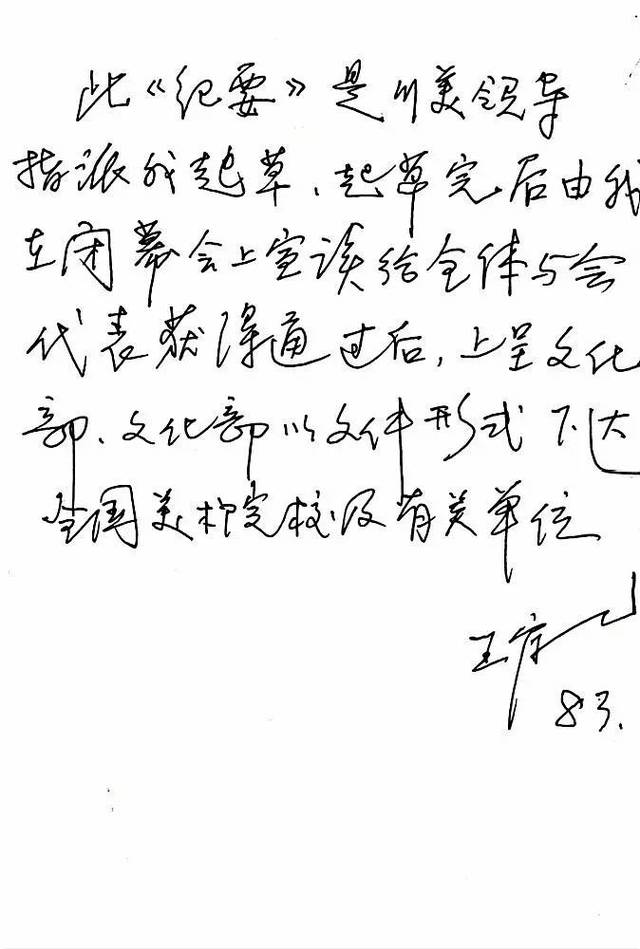 此《纪要》是川美领导
指派我起草、起草完后由我
在闭幕会上宣读给全体与会
代表获得通过后,上呈文化
部、文化部以文件形式下达
全国美术院校及有关单位
王官
83.